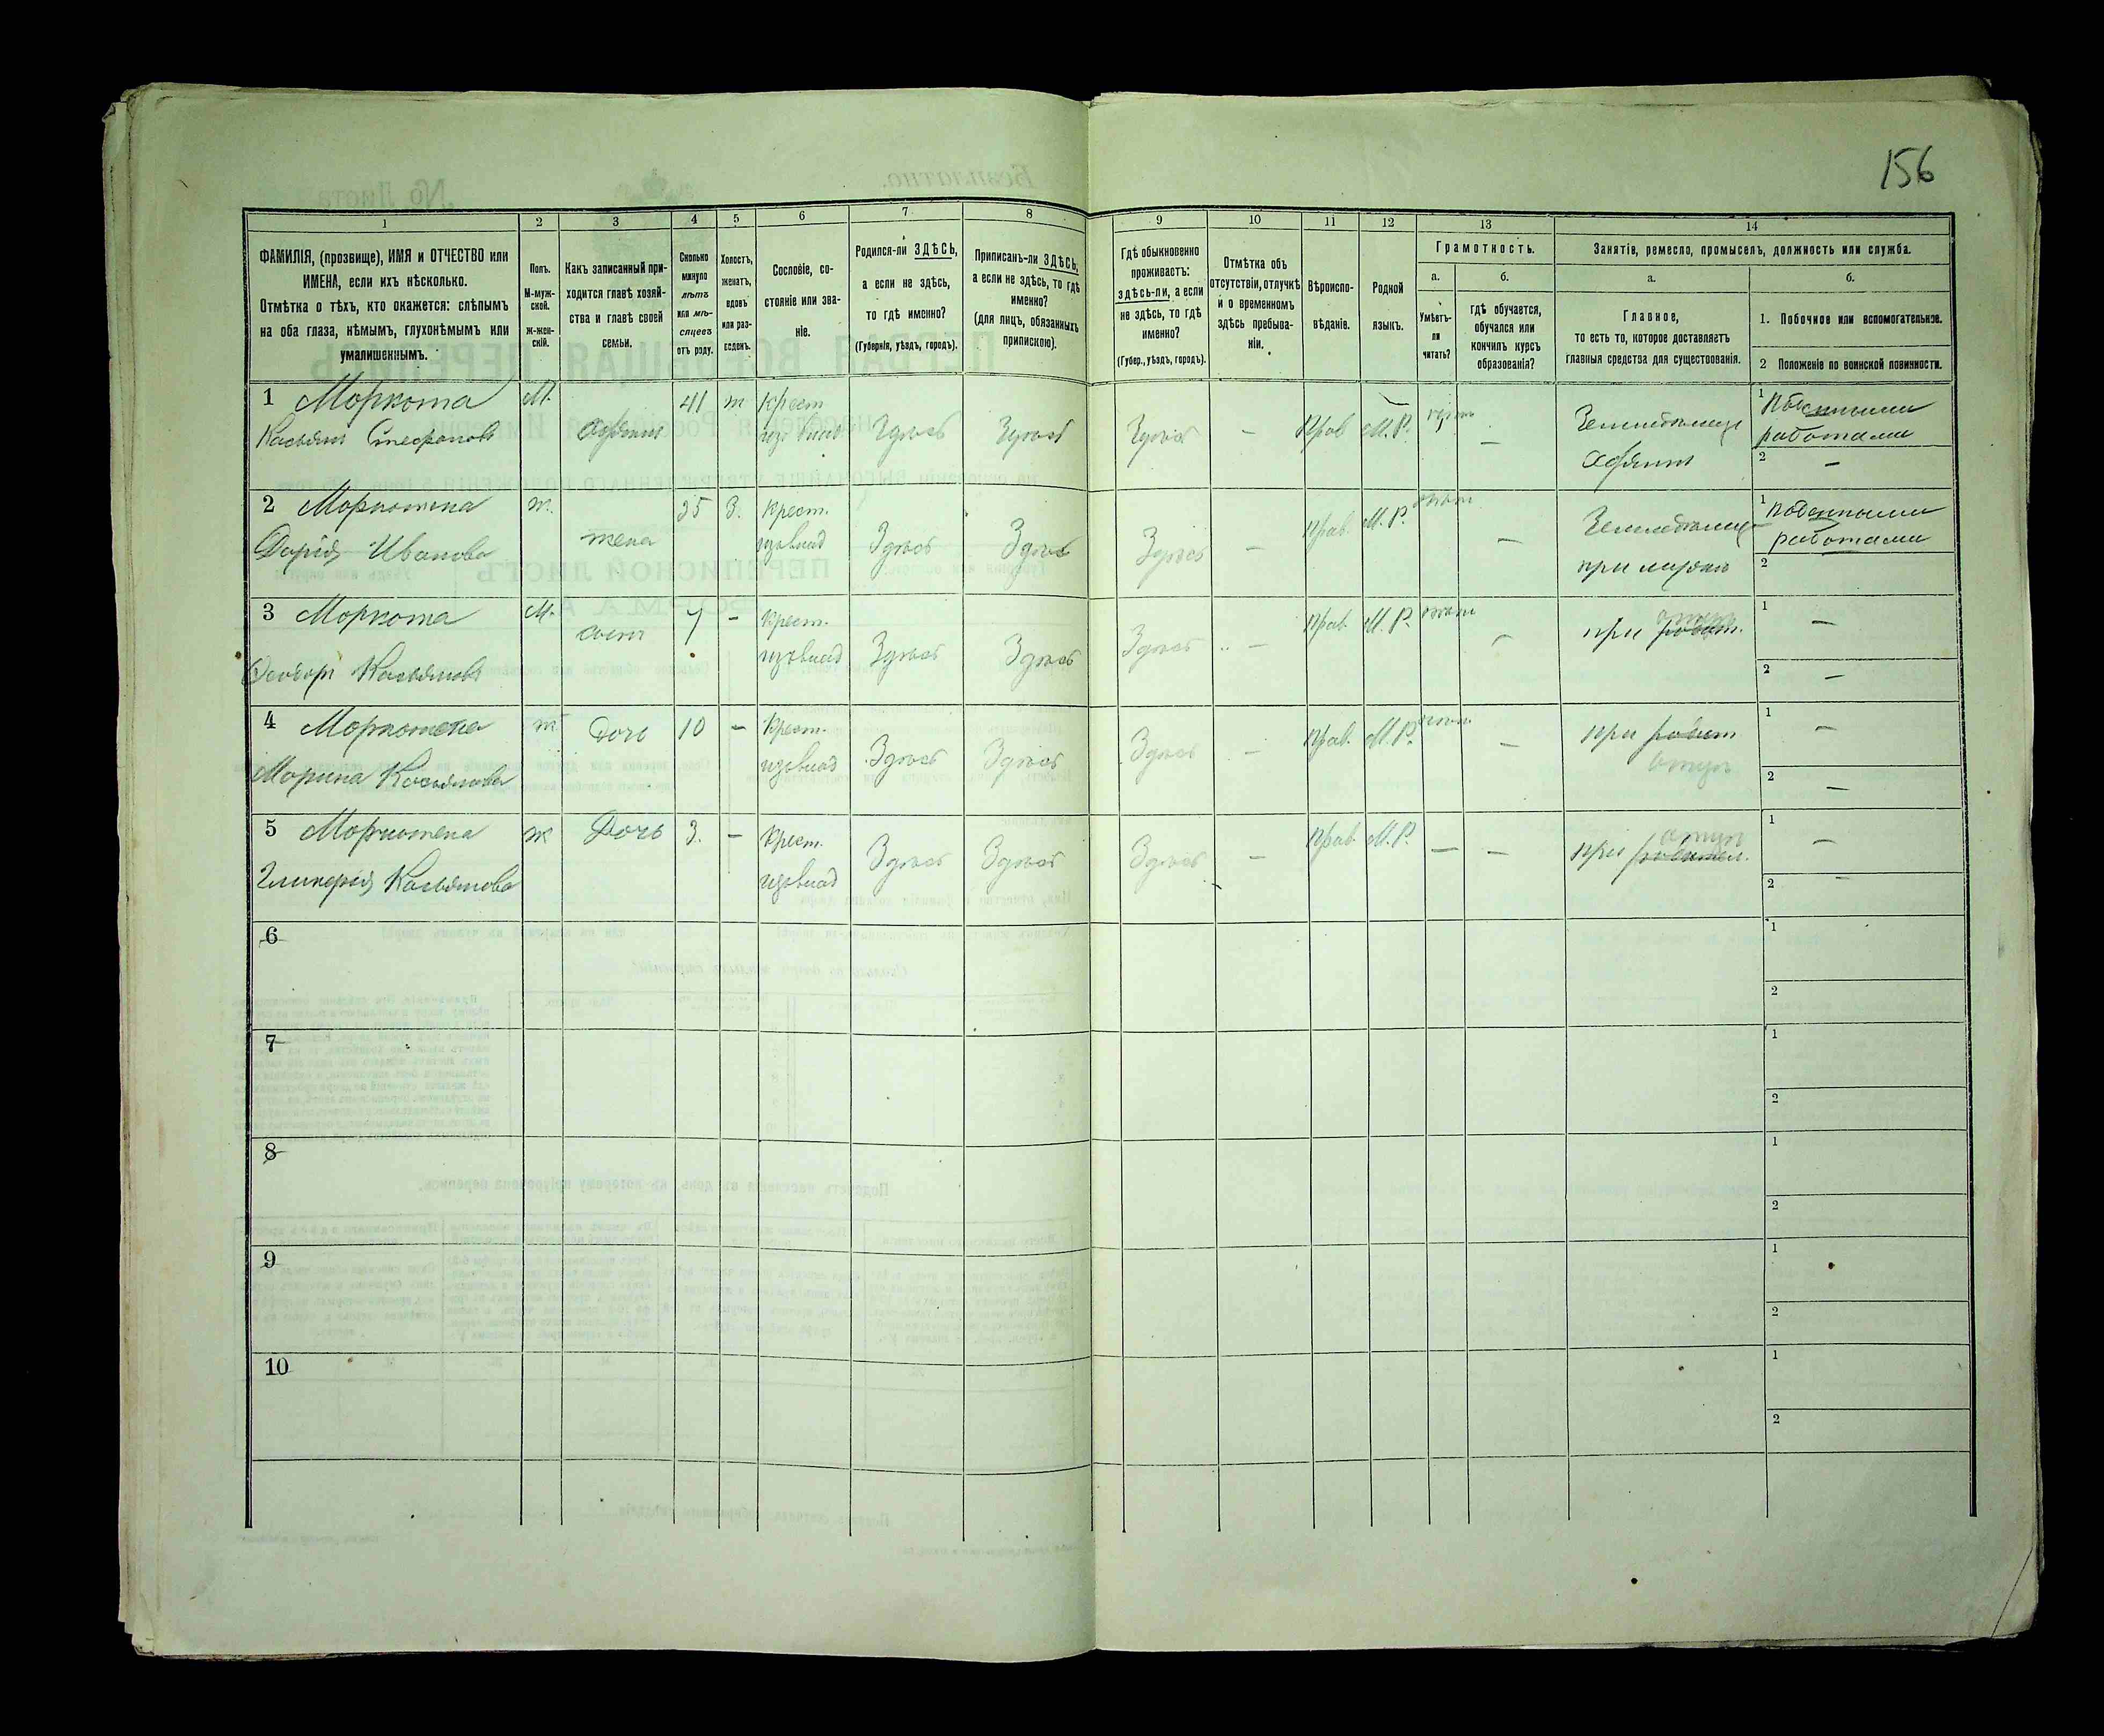 156
1
2
3
4
5
6
7
8
9
10
11
12
13
14
ФАМИЛІЯ, (прозвище), ИМЯ и ОТЧЕСТВО или
ИМЕНА, если ихъ нѣсколько.
Отмѣтка о тѣхъ, кто окажется: слѣпымъ
на оба глаза, нѣмымъ, глухонѣмымъ или
умалишеннымъ.
Полъ.
М-муж-
ской.
ж-жен-
скій.
Какъ записанный при-
ходится главѣ хозяй-
ства и главѣ своей
семьи.
Сколько
минуло
лѣтъ
или мѣ-
сяцевъ
отъ роду.
Холостъ,
женатъ,
вдовъ
или раз-
веденъ.
Сословіе, со-
стояніе или зва-
ніе.
Родился-ли ЗДѢСЬ,
а если не здѣсь,
то гдѣ именно?
(Губернія, уѣздъ, городъ).
Приписанъ-ли ЗДѢСЬ,
а если не здѣсь, то гдѣ
именно?
(для лицъ, обязанныхъ
припискою).
Гдѣ обыкновенно
проживаетъ:
здѣсь-ли, а если
не здѣсь, то гдѣ
именно?
(Губер., уѣздъ, городъ).
Отмѣтка объ
отсутствіи, отлучкѣ
и о временномъ
здѣсь пребыва-
ніи.
Вѣроиспо-
вѣданіе.
Родной
языкъ.
Грамотность.
а.
Умѣетъ-
ли
читать?
б.
гдѣ обучается,
обучался или
кончилъ курсъ
образованія?
Занятія, ремесло, промыселъ, должность или служба.
а.
Главное,
то есть то, которое доставляетъ
главныя средства для существованія.
б.
1. Побочное или вспомогательное.
2 Положеніе по воинской повинности.
1 Моркота
Касьянъ Стефановъ
М.
41
ж
Крест.
Здѣсь
Здѣсь
Здѣсь
—
Прав
М.Р.
—
работами
2 —
2 Моркотена
Дарія Иванова
ж.
жена
35
З.
Крест.
Здѣсь
Здѣсь
Здѣсь
—
Прав.
М.Р.
—
при мужѣ
1 Поденными
работами
2
3 Моркота
Феодоръ Касьяновъ
М.
сынъ
7
-
Крест.
Здѣсь
Здѣсь
Здѣсь
—
Прав.
М.Р.
—
при
1 —
2 —
4 Моркотена
Марина Касьянова
ж
Дочь
10
-
Крест.
Здѣсь
Здѣсь
Здѣсь
—
Прав.
М.Р.
—
при
1 —
2 —
5 Моркотена
Гликерія Касьянова
ж
Дочь
3.
-
Крест.
Здѣсь
Здѣсь
Здѣсь
—
Прав.
М.Р.
—
—
при
1 —
2 —
6
1
2
7
1
2
8
1
2
9
1
2
10
1
2